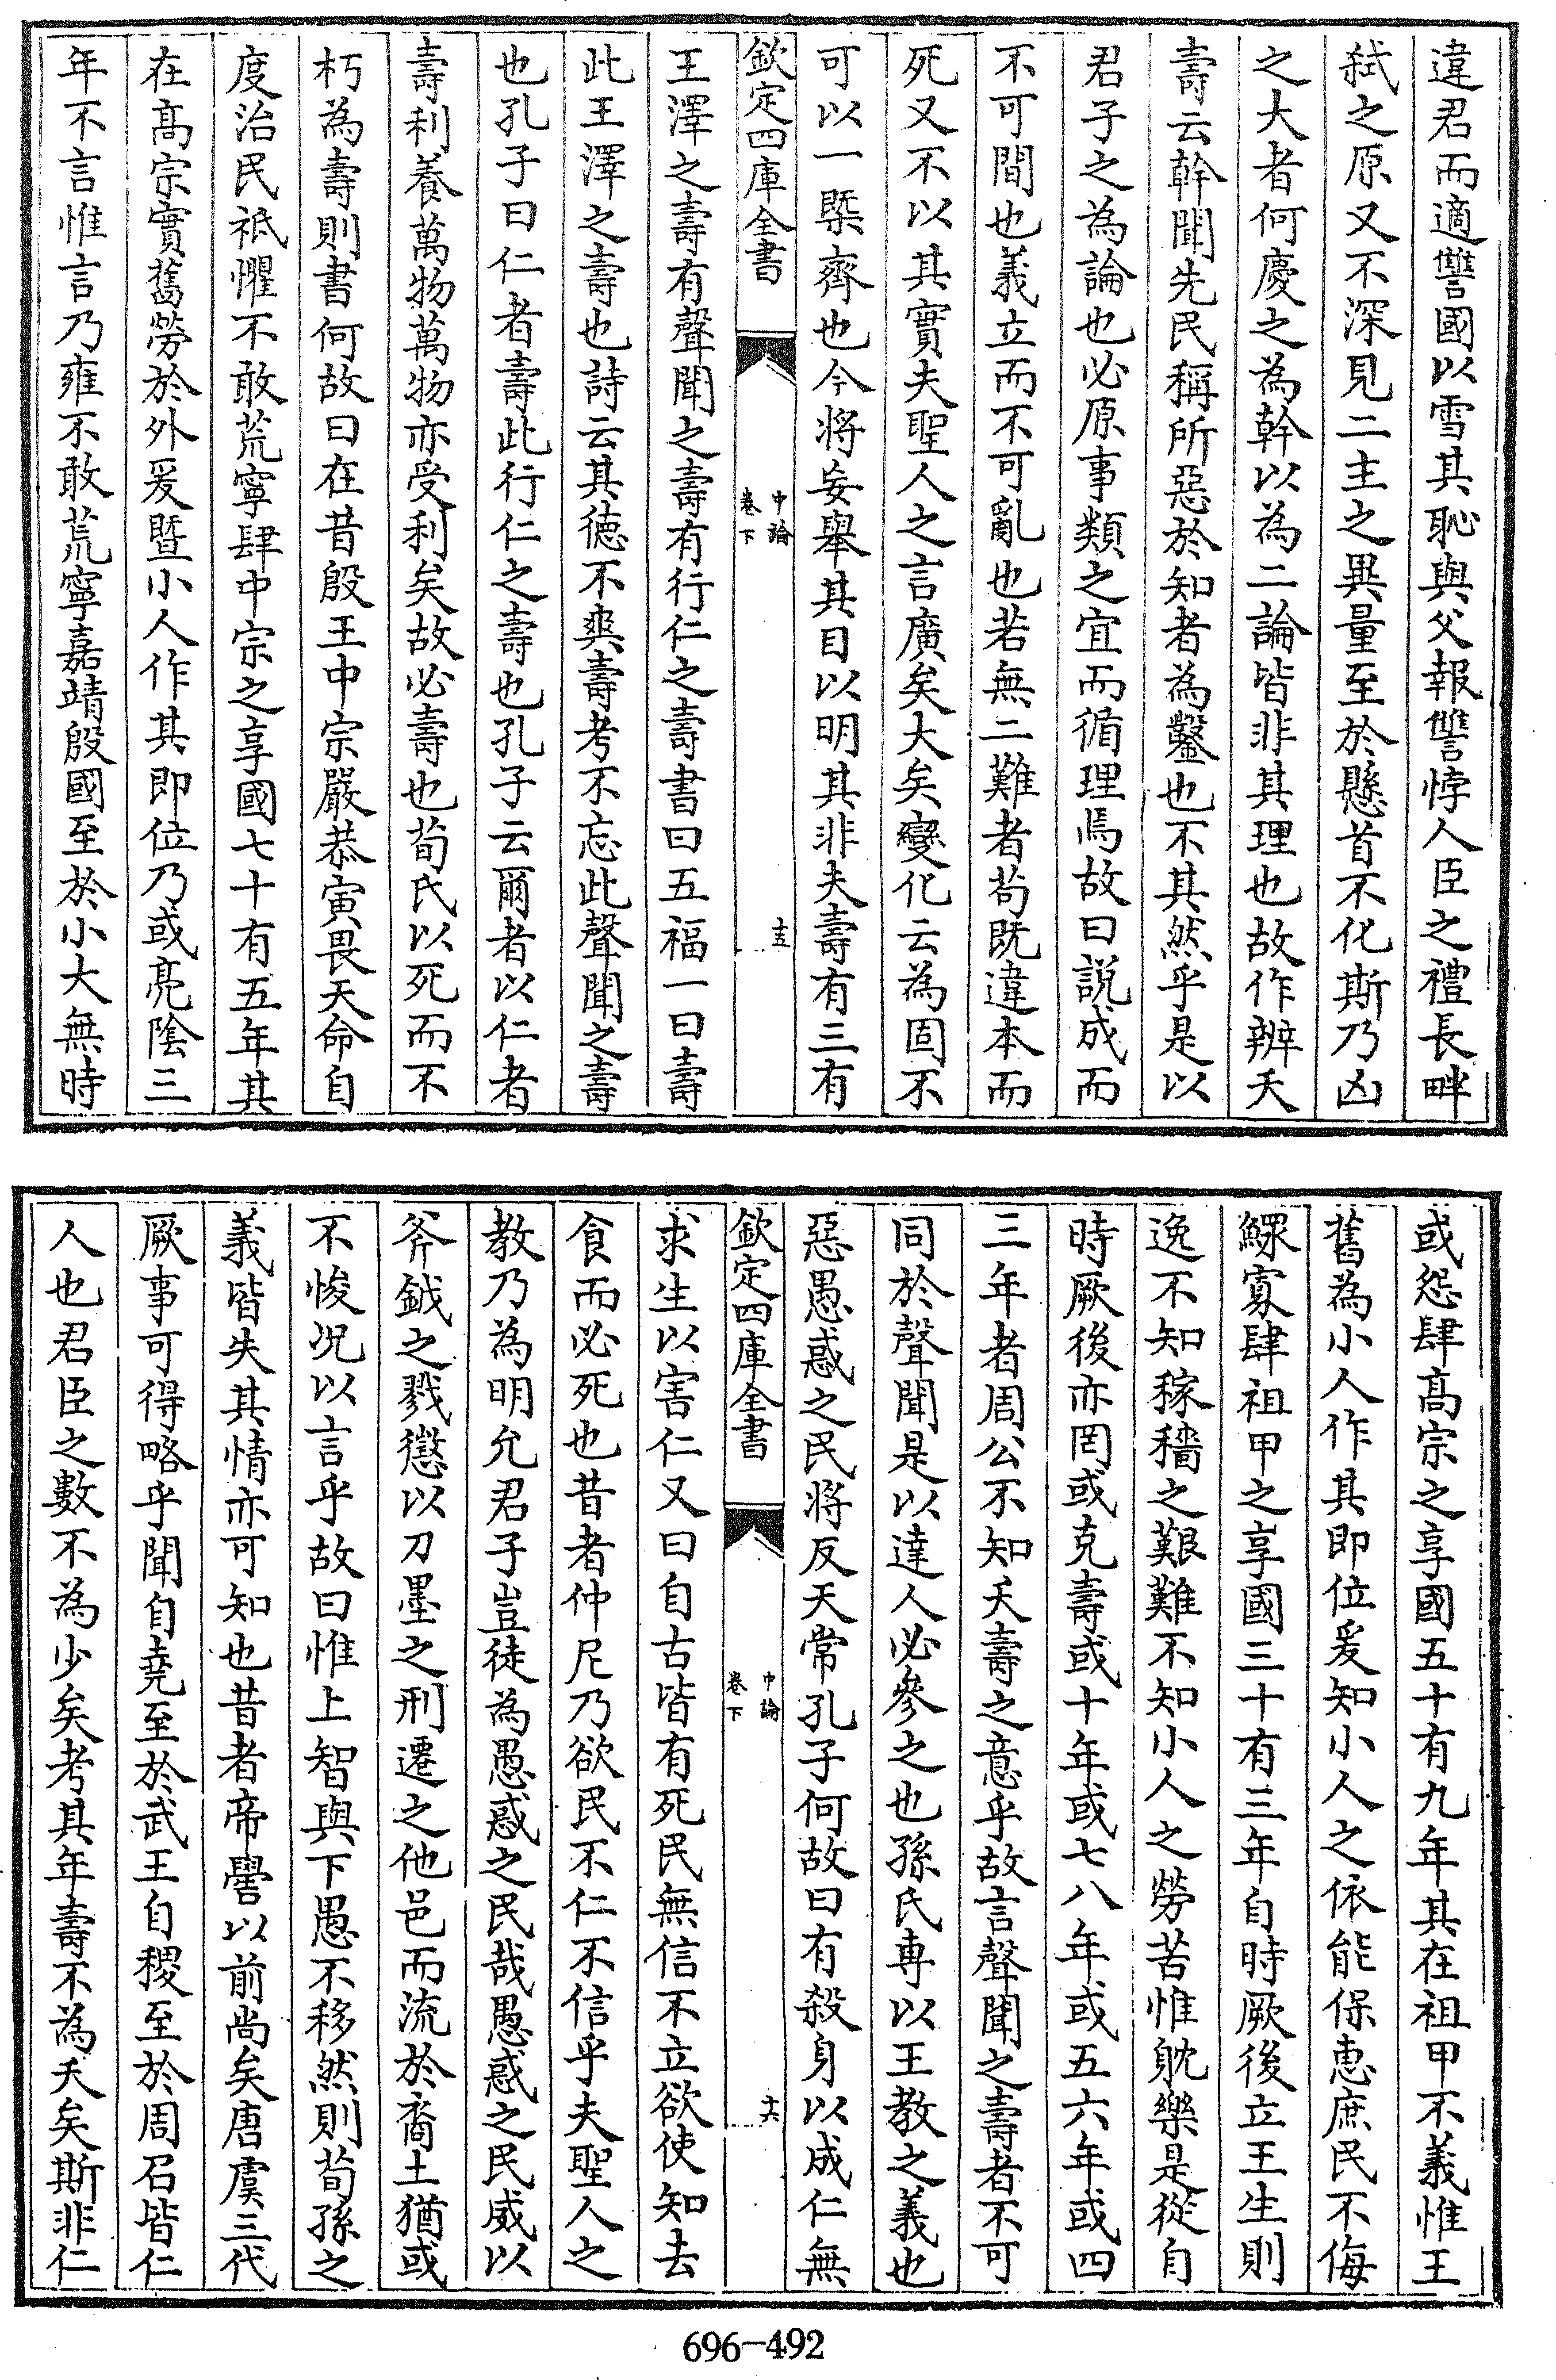 違君而適讐國以雪其恥與父報讐悖人臣之禮長畔
弑之原又不深見二主之異量至於懸首不化斯乃凶
之大者何慶之為幹以為二論皆非其理也故作辨夭
壽云幹聞先民稱所惡於知者為鑿也不其然乎是以
君子之為論也必原事類之宜而循理焉故曰説成而
不可間也義立而不可亂也若無二難者茍既違本而
死又不以其實夫聖人之言廣矣大矣變化云為固不
可以一槩齊也今將妄舉其目以明其非夫壽有三有
欽定四庫全書
中論
卷下
十五
王澤之壽有聲聞之壽有行仁之壽書曰五福一曰壽
此王澤之壽也詩云其徳不爽壽考不忘此聲聞之壽
也孔子曰仁者壽此行仁之壽也孔子云爾者以仁者
壽利養萬物萬物亦受利矣故必壽也荀氏以死而不
朽為壽則書何故曰在昔殷王中宗嚴恭寅畏天命自
度治民祇懼不敢荒寧肆中宗之享國七十有五年其
在髙宗實舊勞於外爰暨小人作其即位乃或亮隂三
年不言惟言乃雍不敢荒寧嘉靖殷國至於小大無時
或怨肆髙宗之享國五十有九年其在祖甲不義惟王
舊為小人作其即位爰知小人之依能保惠庶民不侮
鰥寡肆祖甲之享國三十有三年自時厥後立王生則
逸不知稼穡之艱難不知小人之勞苦惟躭樂是從自
時厥後亦罔或克壽或十年或七八年或五六年或四
三年者周公不知夭壽之意乎故言聲聞之壽者不可
同於聲聞是以達人必參之也孫氏専以王教之義也
惡愚惑之民將反天常孔子何故曰有殺身以成仁無
欽定四庫全書
中論
卷下
十六
求生以害仁又曰自古皆有死民無信不立欲使知去
食而必死也昔者仲尼乃欲民不仁不信乎夫聖人之
教乃為明允君子豈徒為愚惑之民哉愚惑之民威以
斧鉞之戮懲以刀墨之刑遷之他邑而流於裔土猶或
不悛况以言乎故曰惟上智與下愚不移然則荀孫之
義皆失其情亦可知也昔者帝嚳以前尚矣唐虞三代
厥事可得略乎聞自堯至於武王自稷至於周召皆仁
人也君臣之數不為少矣考其年壽不為夭矣斯非仁
696-492